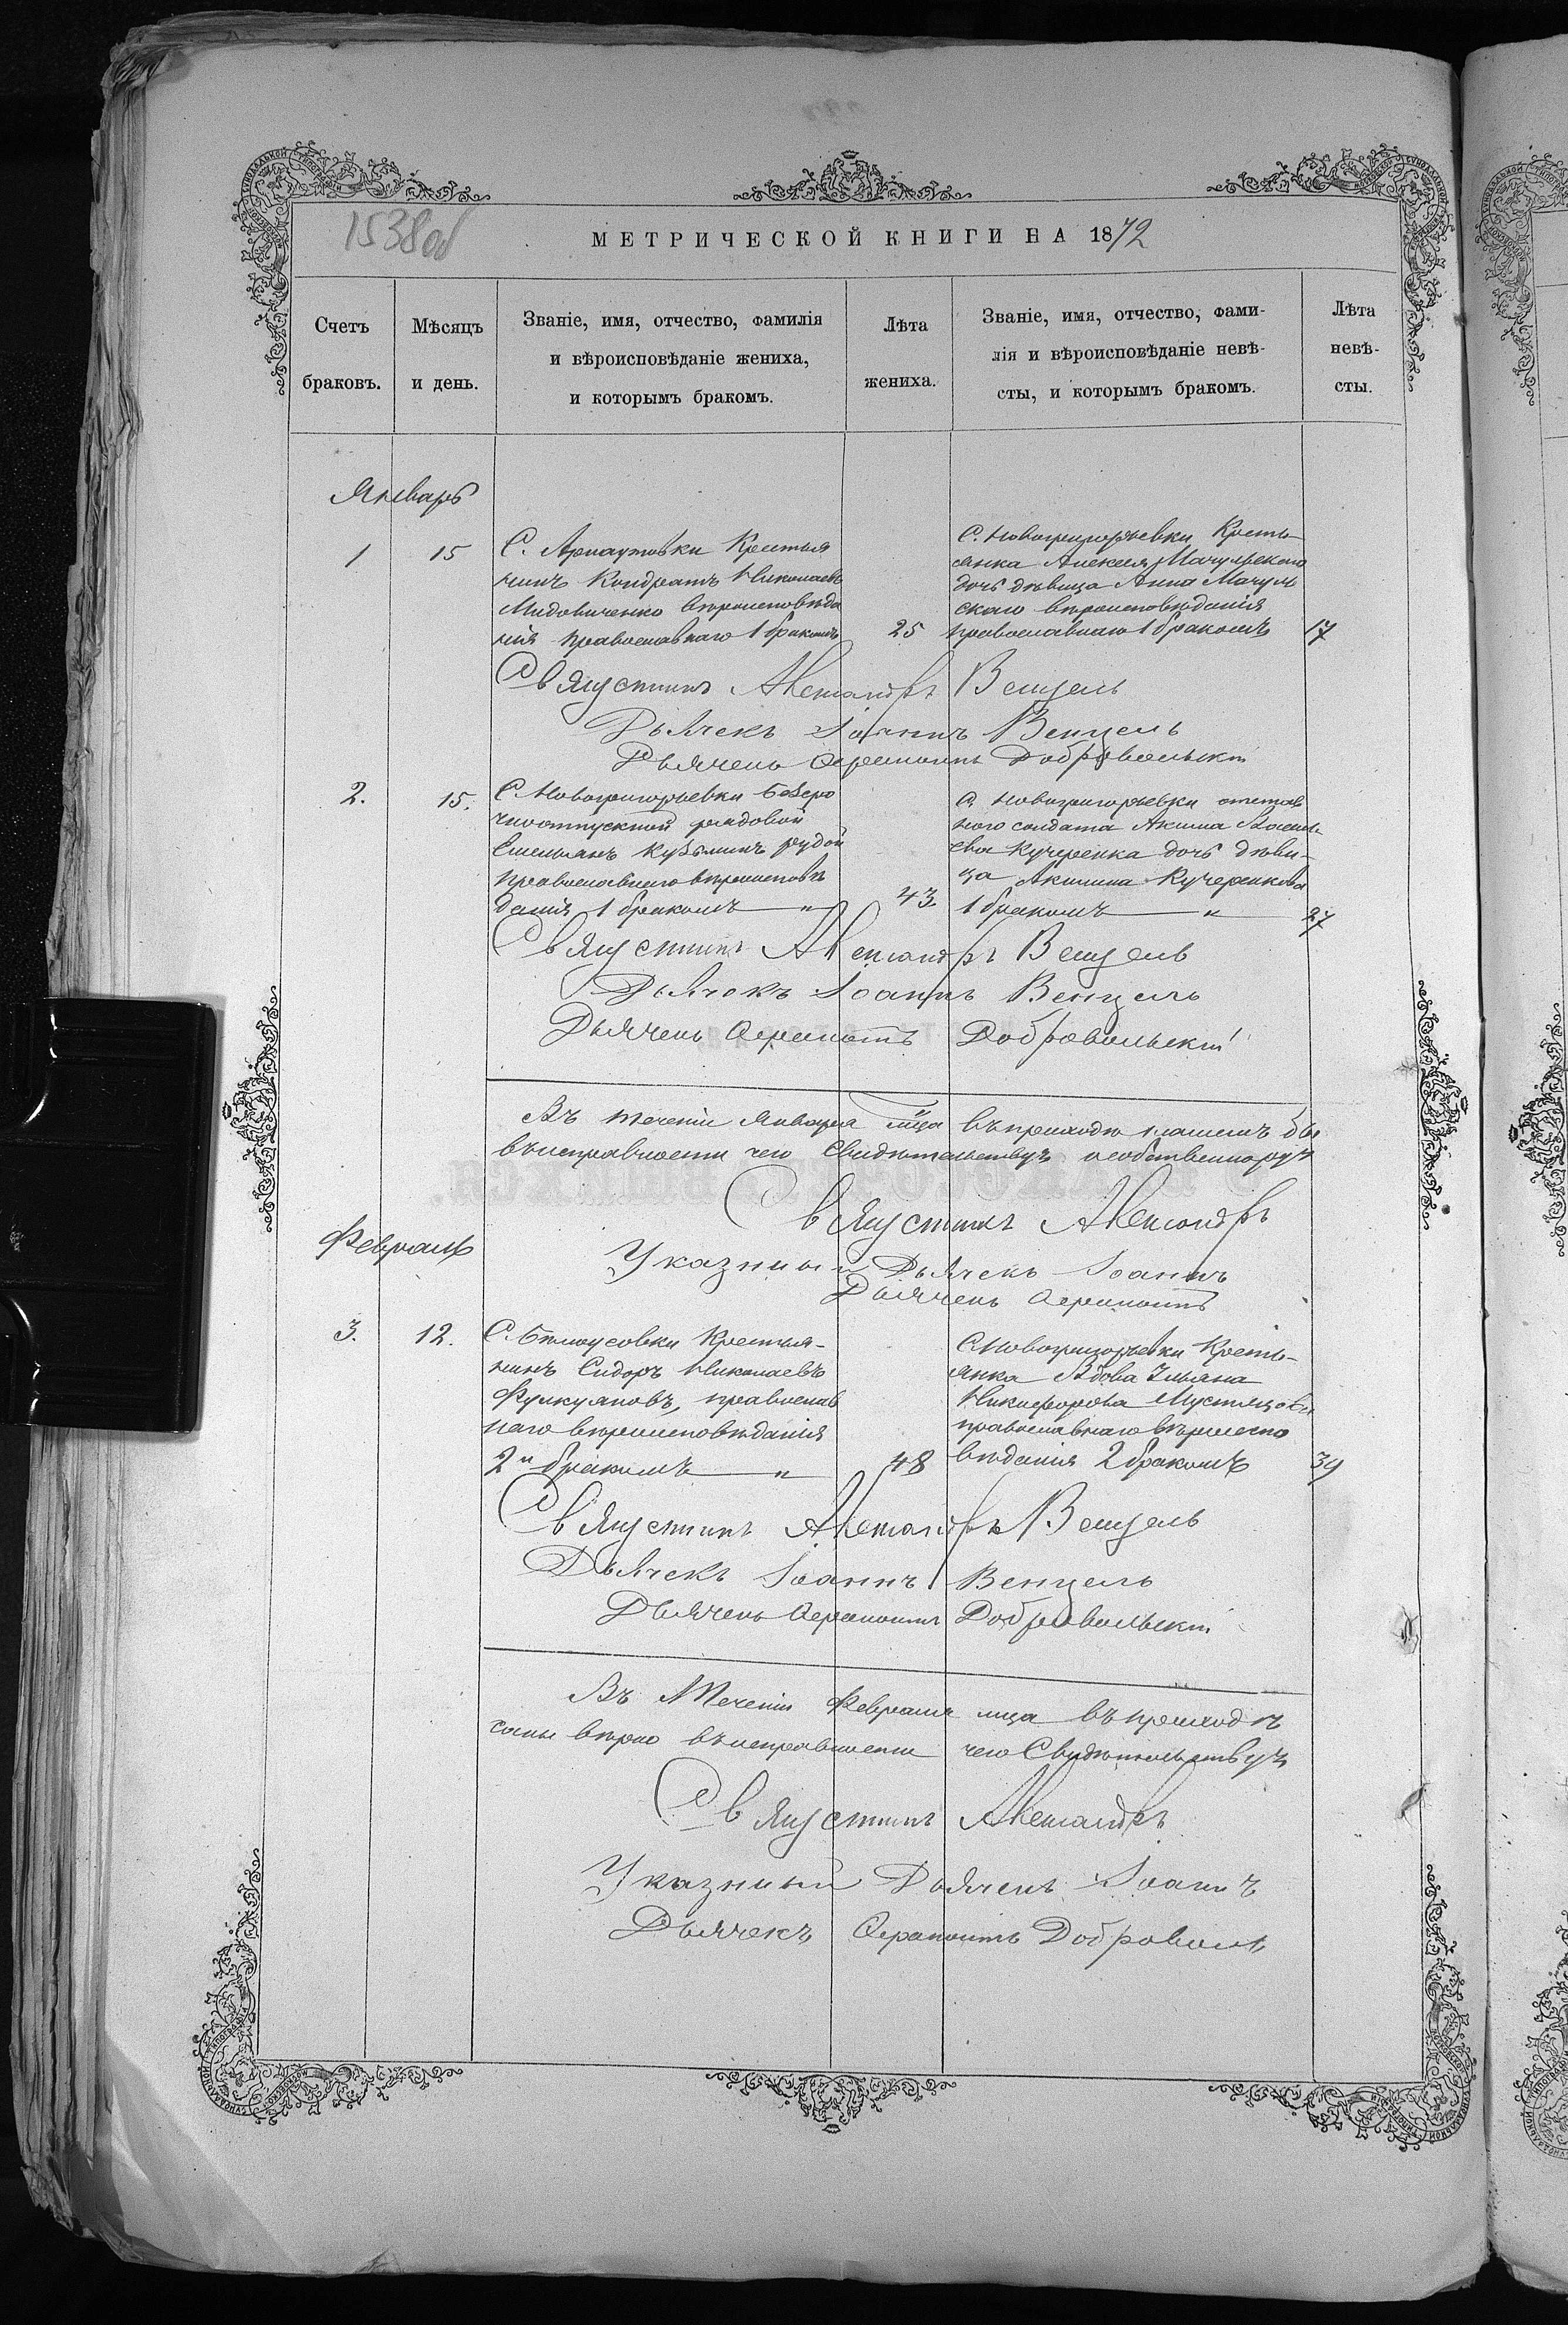 1538об
МЕТРИЧЕСКОЙ КНИГИ НА 1872
Счетъ браковъ.
Мѣсяцъ и день.
Званіе, имя, отчество, фамилія
и вѣроисповѣданіе жениха,
и которымъ бракомъ.
Лѣта жениха.
Званіе, имя, отчество, фами-
лія и вѣроисповѣданіе невѣ-
сты, и которымъ бракомъ.
Лѣта невѣ-
сты.
Январь
1
15
С. Арнаутовки Крестья
нинъ Кондратъ Николаевъ
вѣроисповѣда
нія православнаго 1 бракомъ
25
С. Новогригорьевки Кресть-
янка Алексея Мачульскаго
дочь дѣвица Анна Мачуль
скаго вѣроисповѣданія
православнаго 1 бракомъ
17
Священникъ Александръ Венцель
Дьячекъ Іоаннъ Венцель
Дьячекъ Ѳерапонтъ Добровольскій
2.
15.
С. Новогригорьевки безсро
чноотпускной рядовой
Емельянъ Кузьминъ Рудой
православнаго вѣроисповѣ
данія 1 бракомъ — "
43.
С. Новогригорьевки отстав
ного солдата Акима Василь-
ева Кучеренка дочь дѣви-
ца Акилина Кучеренкова
1 бракомъ — "
27
Священникъ Александръ Венцель
Дьячекъ Іоаннъ Венцель
Дьячекъ Ѳерапонтъ Добровольскій
Въ теченіи Января мца въ приходѣ нашемъ бы
въ исправности чего Свидѣтельствуемъ особственнору
Священникъ Александръ
Указный Дьячекъ Іоаннъ
Дьячекъ Ѳерапонтъ
Февраль
3.
12.
С. Бѣлоусовки Крестья-
нинъ Сидоръ Николаевъ
православ
наго вѣроисповѣданія
2м бракомъ — "
48
С. Новогригорьевки Кресть-
янка Вдова Ульяна
Никифорова
православнаго вѣроиспо
вѣданія 2 бракомъ
39
Священникъ Александръ Венцель
Дьячекъ Іоаннъ Венцель
Дьячекъ Ѳерапонтъ Добровольскій
Въ Теченіи Февраля мца въ приходѣ
саны вѣрно въ исправности чего Свидѣтельствуемъ
Священникъ Александръ
Указный Дьячекъ Іоаннъ
Дьячекъ Ѳерапонтъ Доброволь